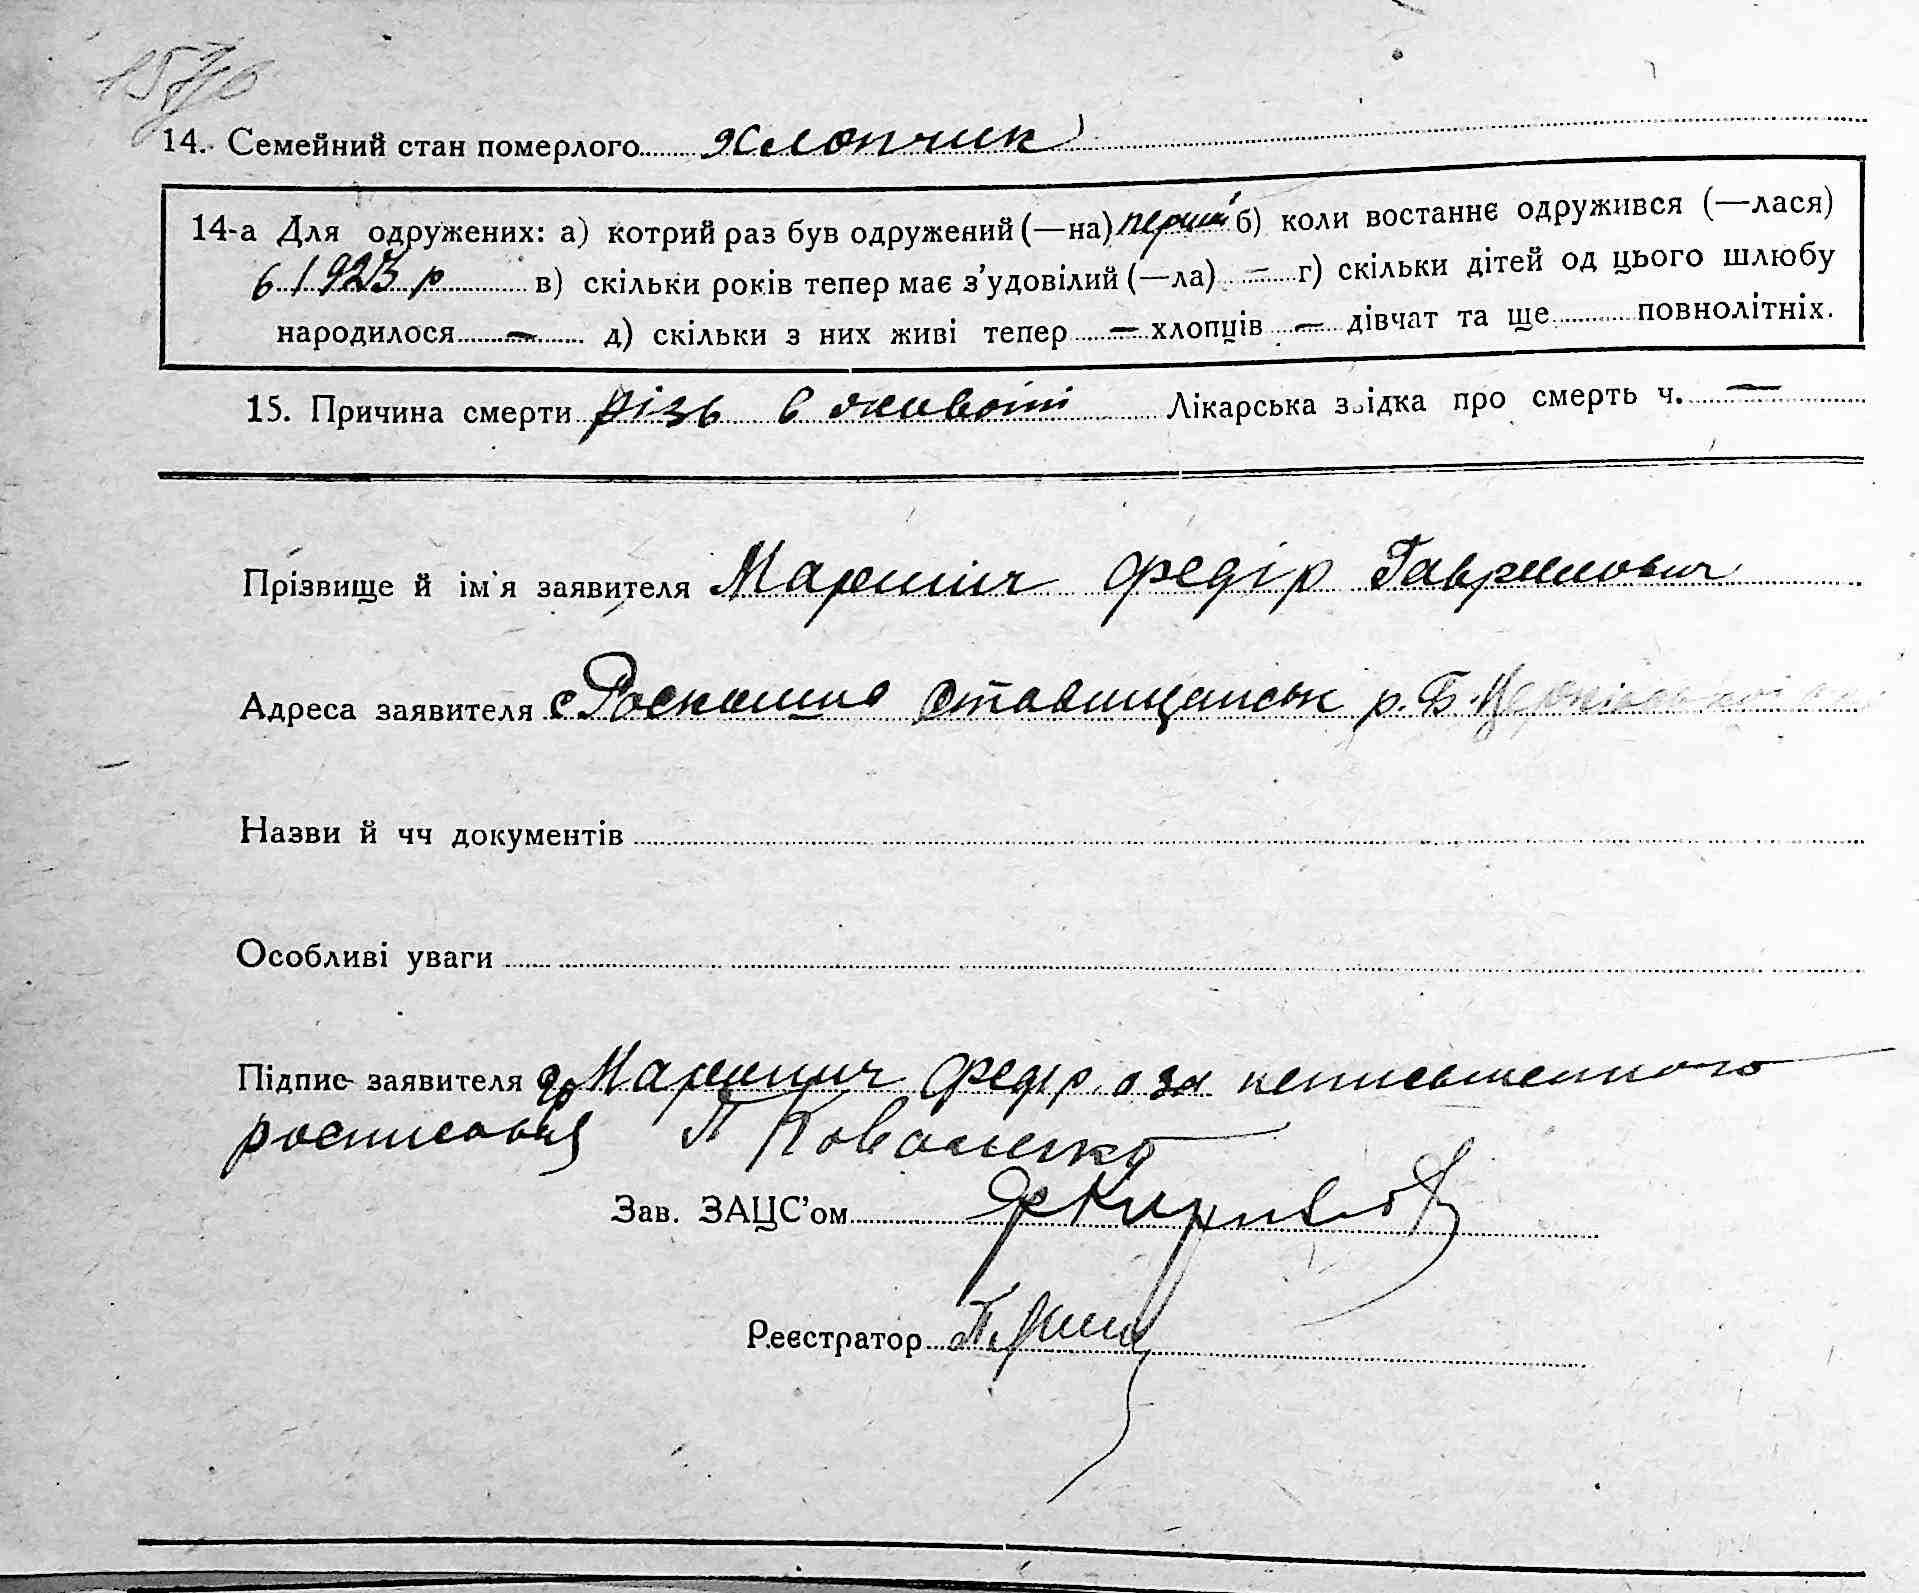 14. Семейний стан померлого хлопчик
14-а Для одружених: а) котрий раз був одружений (—на) перший б) коли востаннє одружився (—лася)
в 1923 р в) скільки років тепер має з'удовілий (—ла) — г) скільки дітей од цього шлюбу
народилося — д) скільки з них живі тепер — хлопців — дівчат та ще повнолітніх.
15. Причина смерти різь в животі Лікарська звідка про смерть ч. —
Прізвище й ім'я заявителя Маринич Федір Гаврилович
Адреса заявителя с Роскошна Ставищанськ р. Б. Церківської
Назви й чч документів
Особливі уваги
Підпис заявителя Маринич Федір, а за неписьменного
росписався П Коваленко
Зав. ЗАЦС'ом
Реєстратор